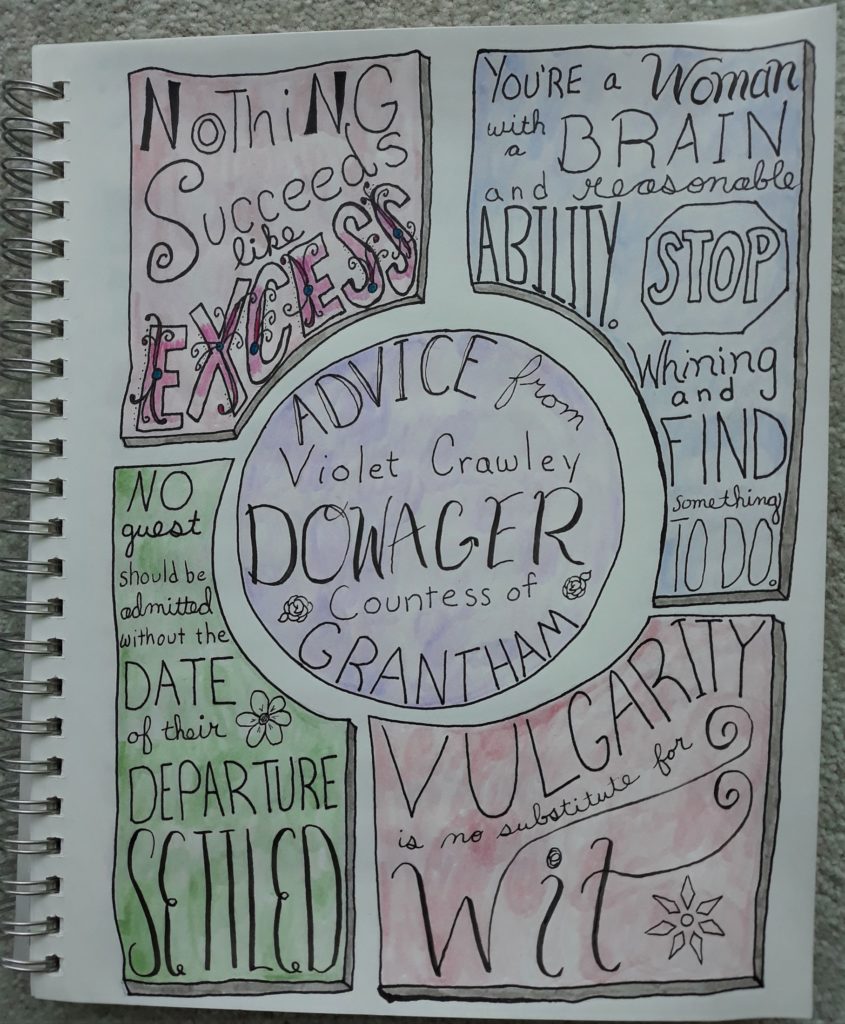 NOTHING
Succeeds
like
EXCESS
YOU'RE a Woman
with a BRAIN
and reasonable
ABILITY.
STOP
Whining
and
FIND
something
TO DO.
ADVICE from
Violet Crawley
DOWAGER
Countess of
GRANTHAM
NO
guest
should be
admitted
without the
DATE
of their
DEPARTURE
SETTLED
VULGARITY
is no substitute for
Wit